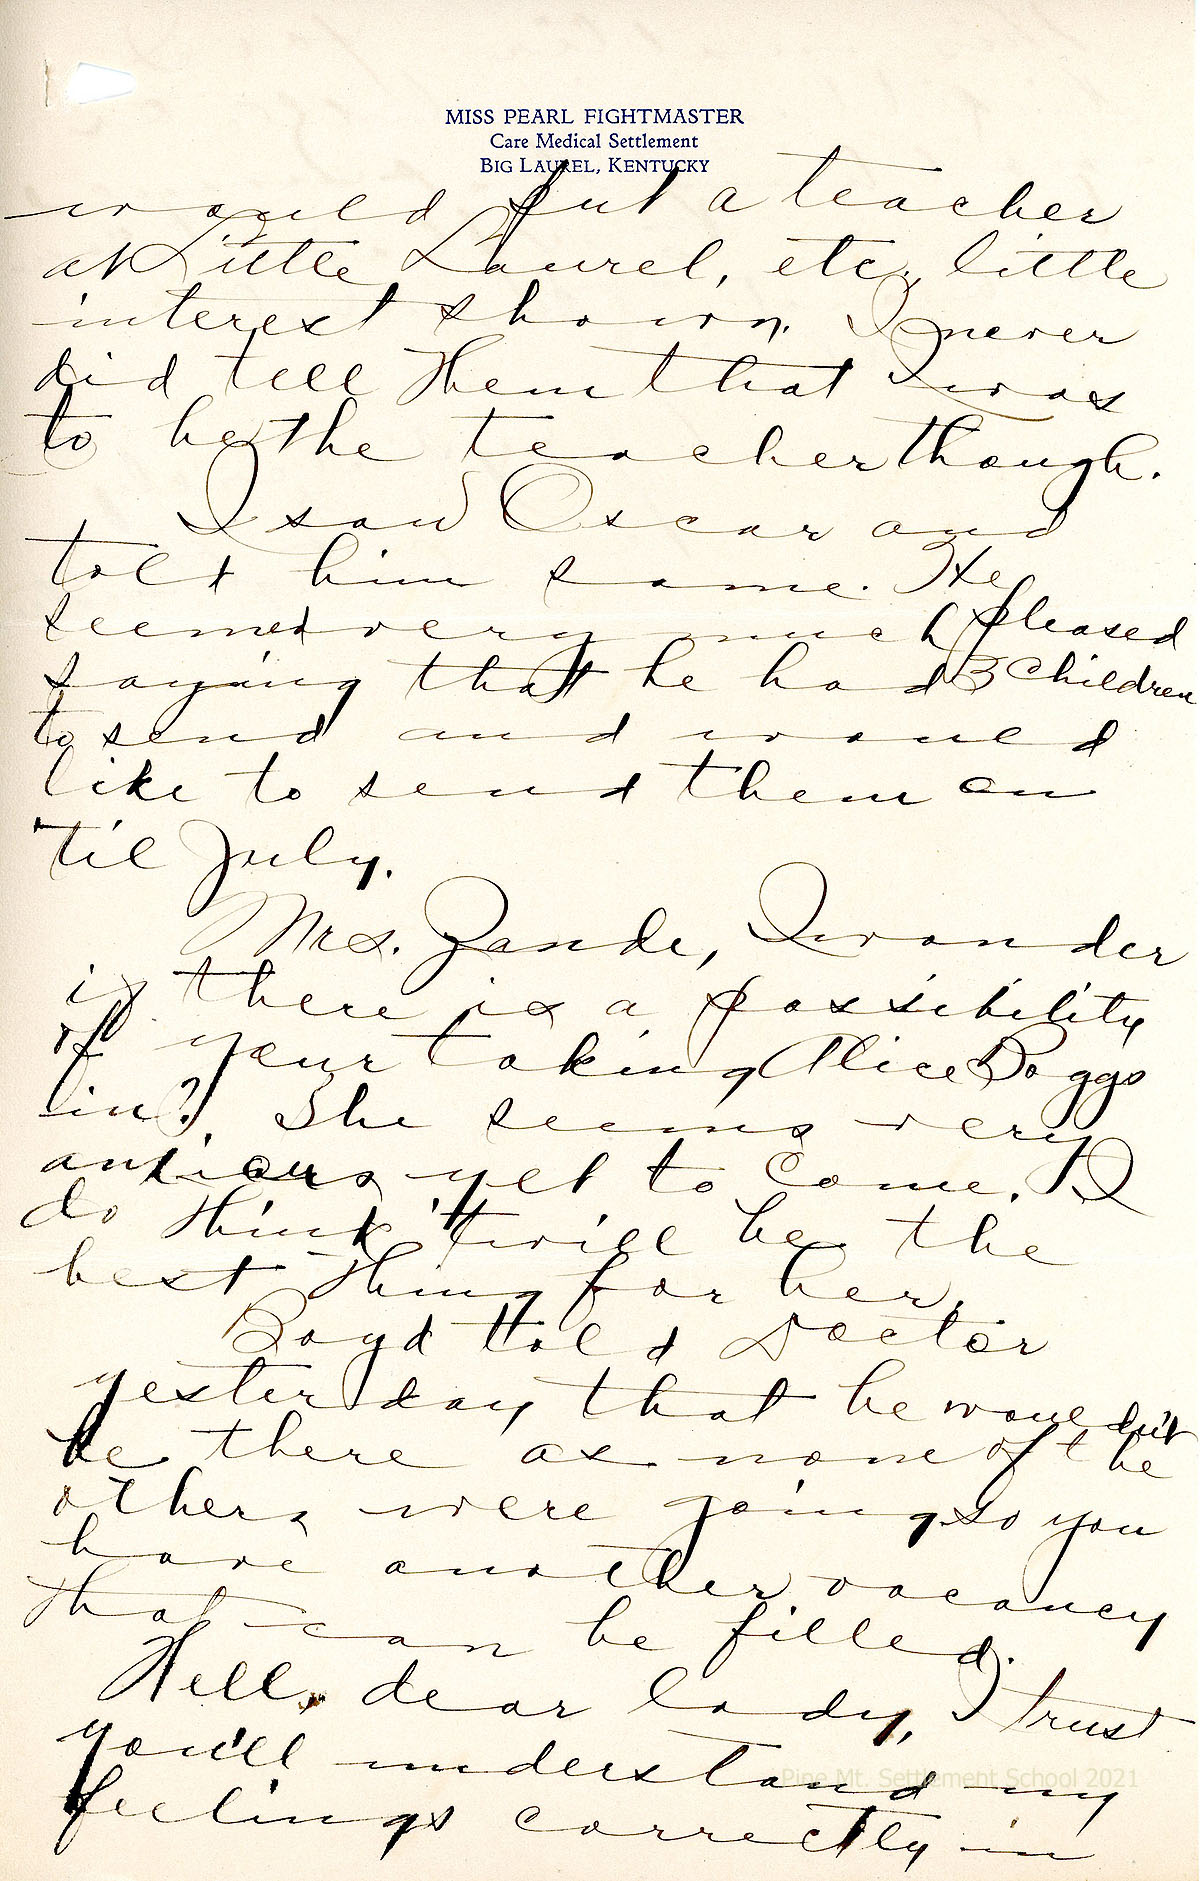 MISS PEARL FIGHTMASTER
Care Medical Settlement
BIG LAUREL, KENTUCKY
would put a teacher
at Little Laurel, etc, little
interest shown. I never
did tell them that I was
to be the teacher though.
I saw Oscar and
told him same. He
seemed very much pleased
saying that he had 3 children
to send and would
like to send them on
'til July.
Mrs. Zande, I wonder
if there is a possibility
of your taking Alice Boggs
in? She seems very
anxious yet to come. I
do think 'twill be the
best thing for her.
Boyd told Doctor
yesterday that he wouldn't
be there as none of the
others were going so you
have another vacancy
that can be filled.
Well, dear lady, I trust
you'll understand my
feelings correctly in
Pine Mt. Settlement School 2021